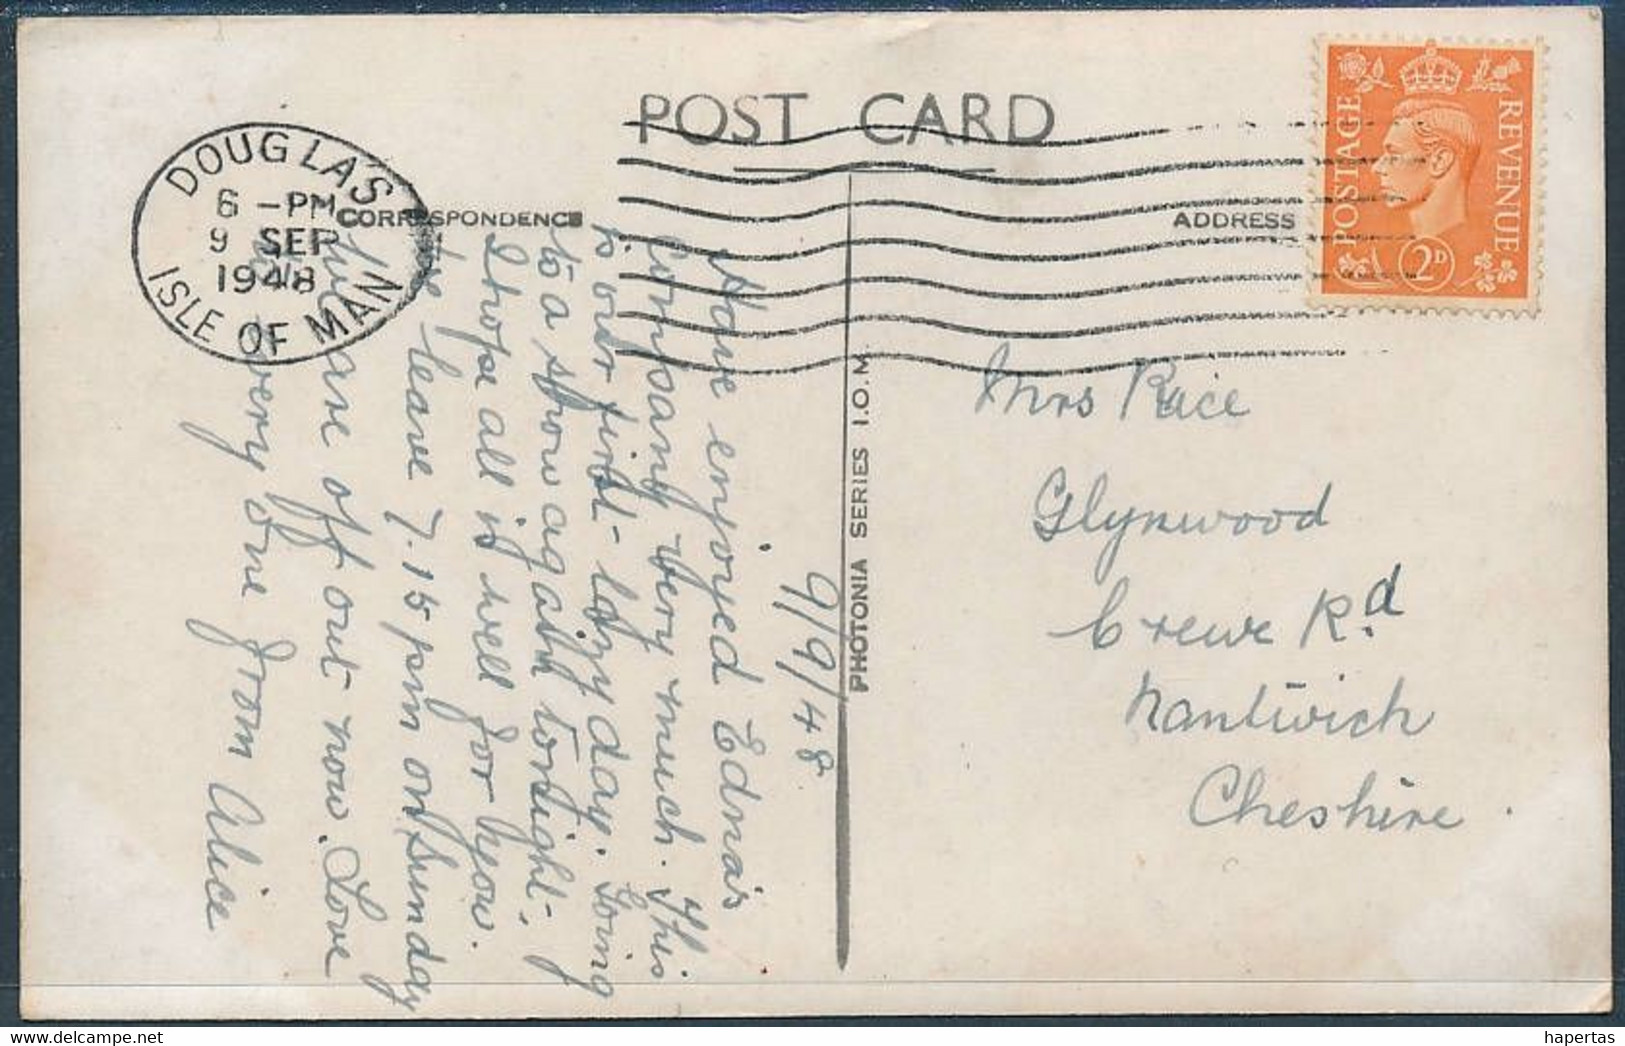 POST CARD
CORRESPONDENCE
ADDRESS
DOUGLAS
6 - PM
9 SEP
1948
ISLE OF MAN
POSTAGE
REVENUE
2D
PHOTONIA SERIES I.O.M.
9/9/48
Have enjoyed Edna's
Company very much. This
is our first lazy day. Going
to a show again tonight.
I hope all is well for you.
We leave 7.15 pm on Sunday
We are off out now. Love
to every one from Alice
Mrs Price
Glynwood
Crewe Rd
Nantwich
Cheshire.
hapertas